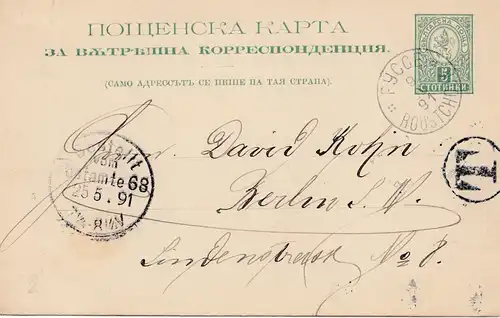 ПОЩЕНСКА КАРТА
ЗА ВѪТРѢШНА КОРРЕСПОНДЕНЦИЯ.
(САМО АДРЕССЪТЪ СЕ ПИШЕ НА ТАЯ СТРАНА).
5
СТОТИНКИ
РУССЕ
91
ROUSTCH
T
Herr David Kohn
Berlin S. W.
Lindenstrasse No 8.
Bestellt
vom
Postamte 68
25.5.91